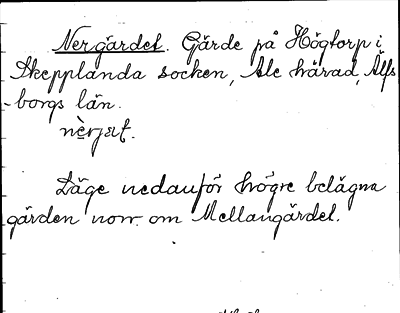 Nergärdet. Gärde på Högtorp i
Skepplanda socken, Ale härad, Älfs
-borgs län.
nèrjæt.
Läge nedanför högre belägna
gärden norr om Mellangärdet.